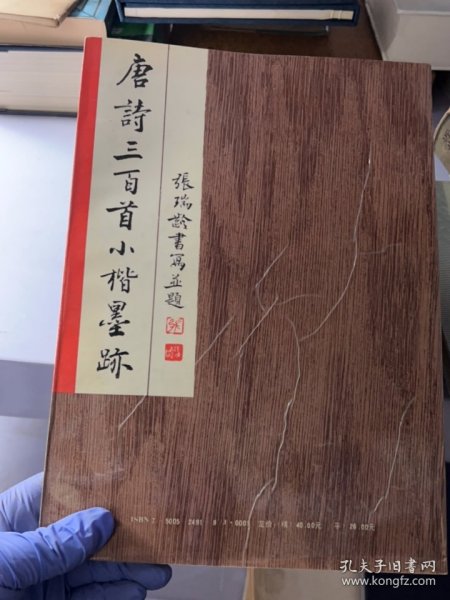 唐詩三百首小楷墨跡
張瑞齡書寫並題
ISBN 7 5005 2491 8 J·0001 定价：(精) 40.00元 平 26.00元
孔夫子旧书网
www.kongfz.com